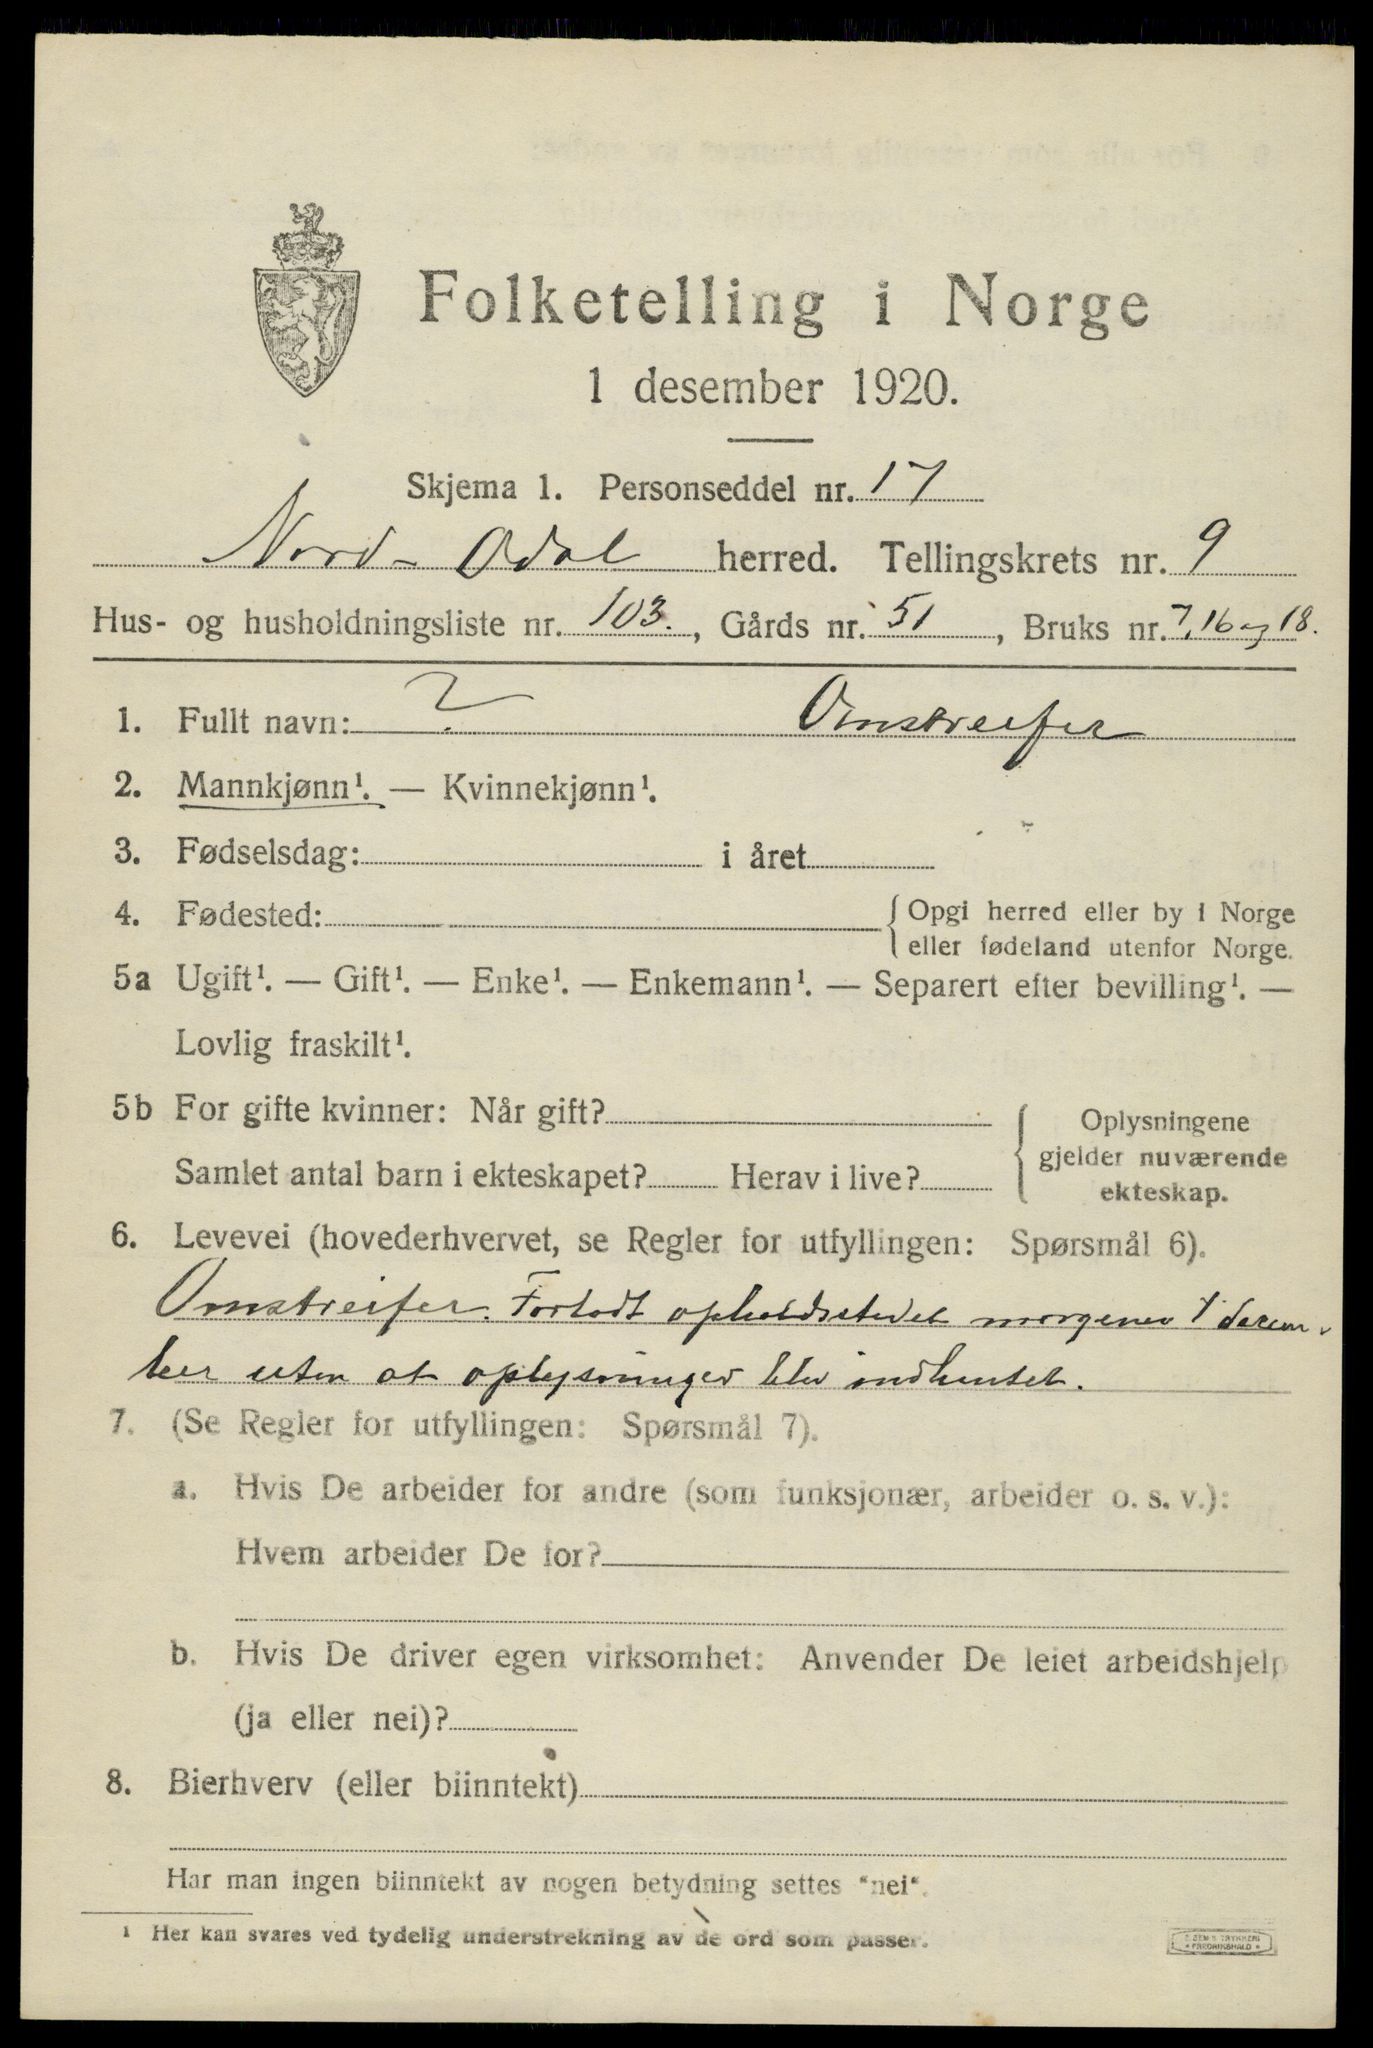 Folketelling i Norge
1 desember 1920.
Skjema 1. Personseddel nr. 17
Nord-Odal herred. Tellingskrets nr. 9
Hus- og husholdningsliste nr. 103., Gårds nr. 51, Bruks nr. 7, 16 og 18.
1. Fullt navn: ? Omstreifer
2. Mannkjønn¹. — Kvinnekjønn¹.
3. Fødselsdag: i året
4. Fødested: { Opgi herred eller by i Norge
eller fødeland utenfor Norge.
5a Ugift¹. — Gift¹. — Enke¹. — Enkemann¹. — Separert efter bevilling¹. —
Lovlig fraskilt¹.
5b For gifte kvinner: Når gift? { Oplysningene
gjelder nuværende
Samlet antal barn i ekteskapet? Herav i live?
ekteskap.
6. Levevei (hovederhvervet, se Regler for utfyllingen: Spørsmål 6).
Omstreifer. Forlodt opholdsstedet morgenen 1 decem-
ber uten at oplysninger blev indhentet.
7. (Se Regler for utfyllingen: Spørsmål 7).
a. Hvis De arbeider for andre (som funksjonær, arbeider o. s. v.):
Hvem arbeider De for?
b. Hvis De driver egen virksomhet: Anvender De leiet arbeidshjelp
(ja eller nei)?
8. Bierhverv (eller biinntekt)
Har man ingen biinntekt av nogen betydning settes "nei".
¹ Her kan svares ved tydelig understrekning av de ord som passer.
TRYKKERI
FREDRIKSHALD